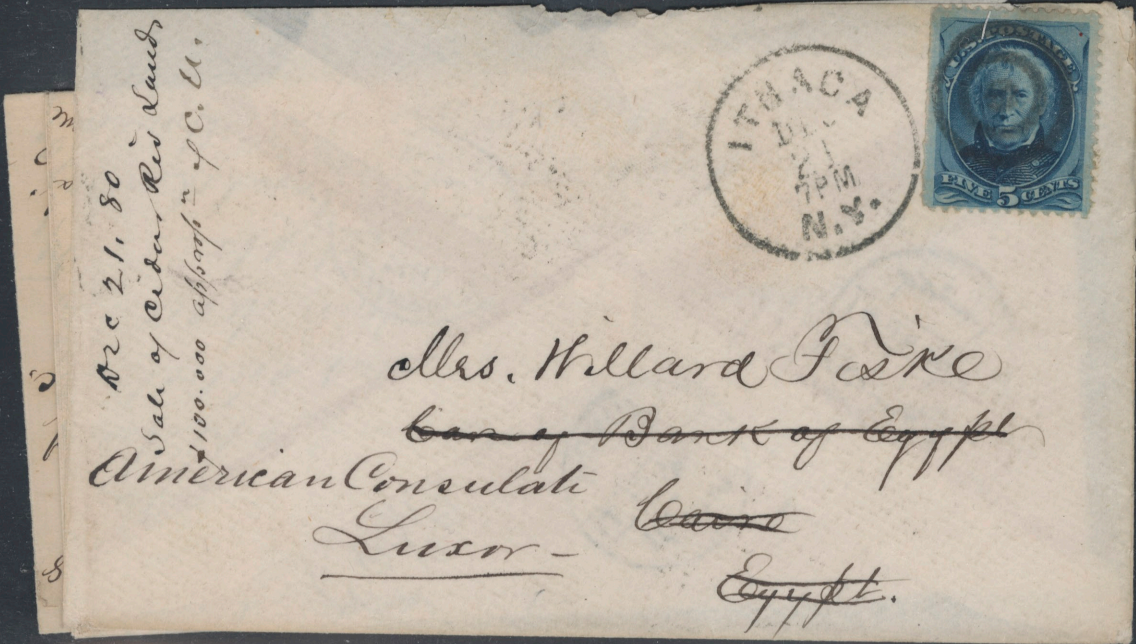 Dec 21. 80
Sale of Cedar Red Land
$100.000 approp n of C. U.
ITHACA
DEC
21
7PM
N.Y.
U.S. POSTAGE
FIVE 5 CENTS
Mrs. Willard Fiske
Care of Bank of Egypt
Cairo
Egypt.
American Consulate
Luxor -